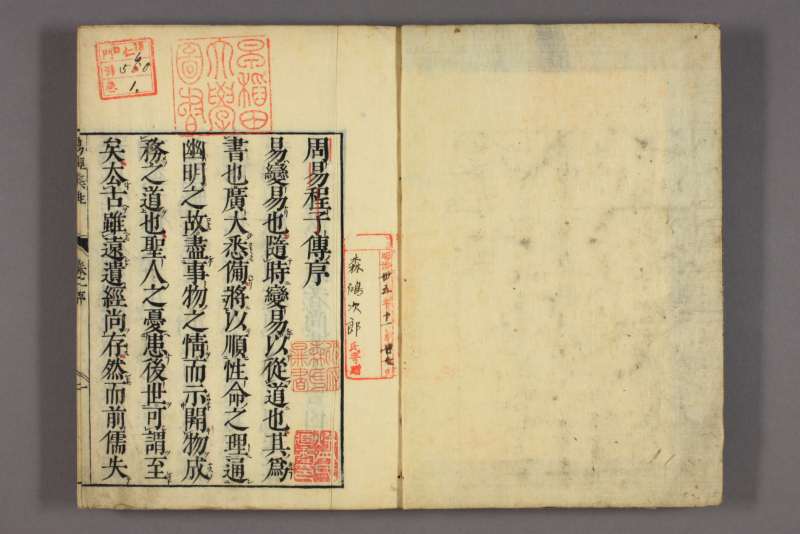 周易程子傳序
易變易也隨時變易以從道也其爲
書也廣大悉備將以順性命之理通
幽明之故盡事物之情而示開物成
務之道也聖人之憂患後世可謂至
矣太古雖遠遺經尚存然而前儒失
早稻田
大學
圖書
森鴻次郎
氏寄贈